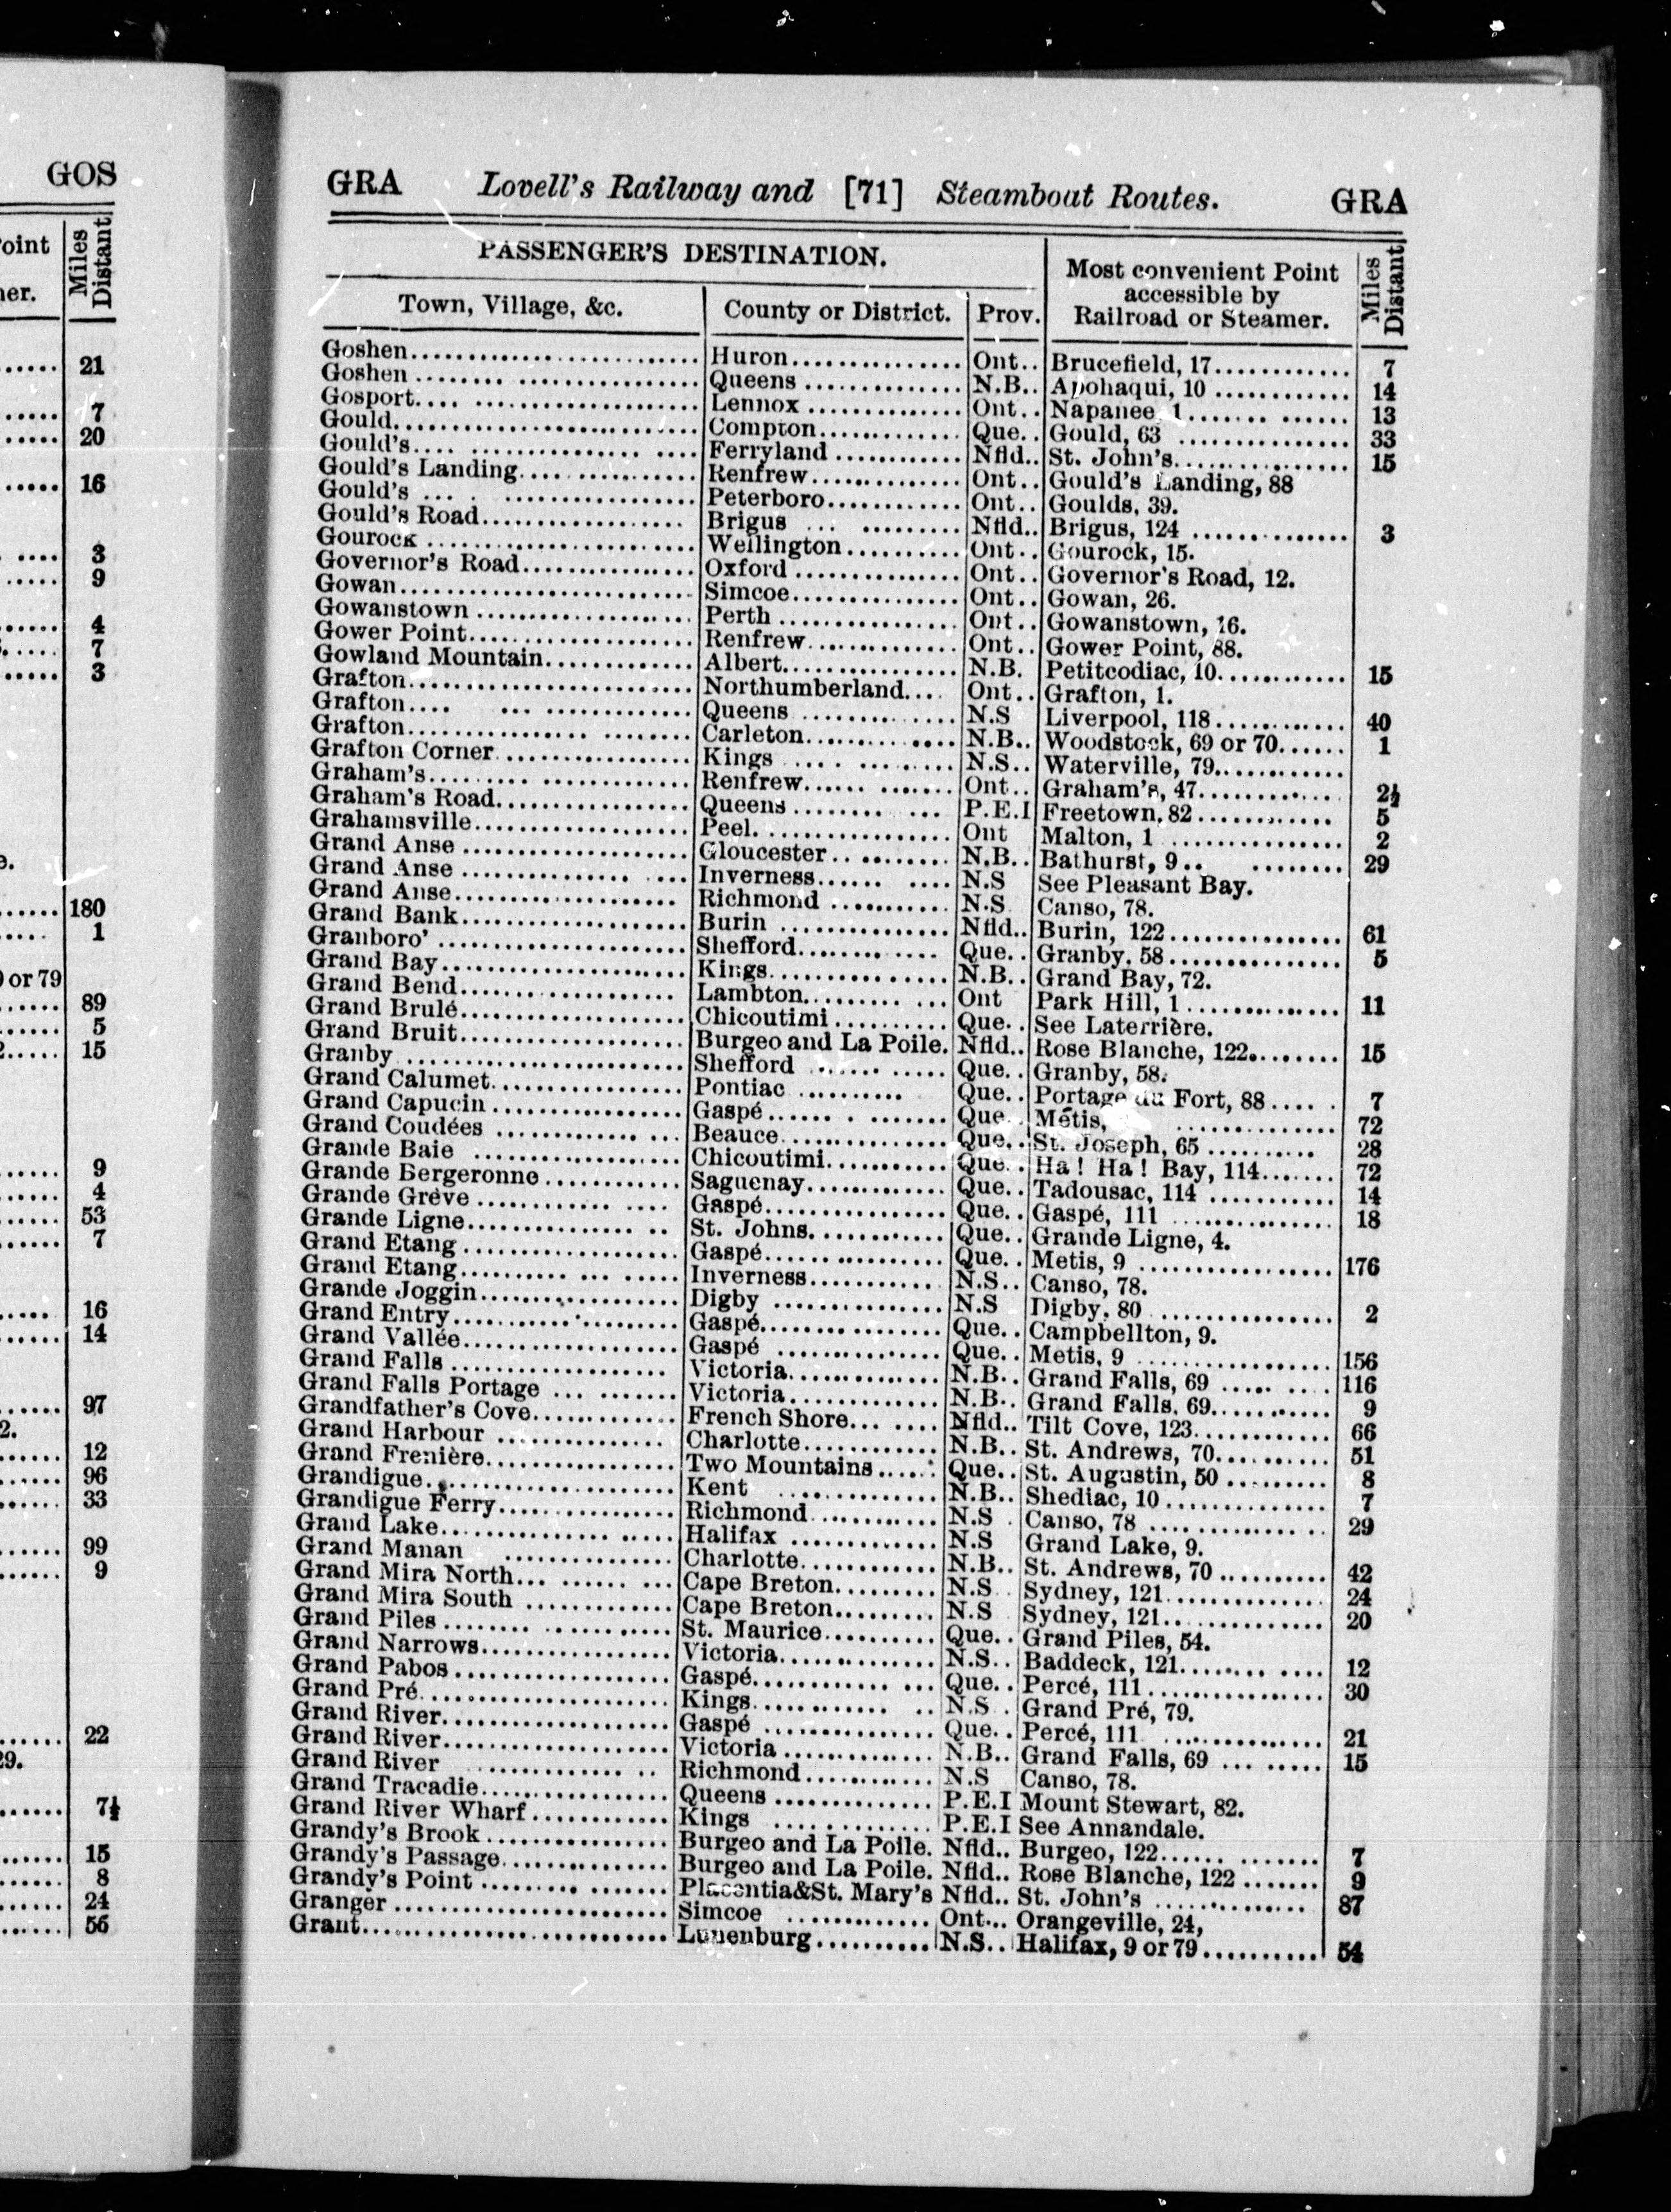 GOS
oint
er.
Miles Distant
21
7
20
16
3
9
4
7
3
e.
180
1
0 or 79
89
5
2..... 15
9
4
53
7
16
14
97
2.
12
96
33
99
9
22
29.
7½
15
8
24
56
GRA Lovell's Railway and [71] Steamboat Routes. GRA
PASSENGER'S DESTINATION.
Most convenient Point accessible by Railroad or Steamer.
Miles Distant
Town, Village, &c. County or District. Prov.
Goshen.......... Huron.......... Ont.. Brucefield, 17.......... 7
Goshen.......... Queens.......... N.B.. Apohaqui, 10.......... 14
Gosport.......... Lennox.......... Ont.. Napanee, 1.......... 13
Gould.......... Compton.......... Que.. Gould, 63.......... 33
Gould's.......... Ferryland.......... Nfld.. St. John's.......... 15
Gould's Landing.......... Renfrew.......... Ont.. Gould's Landing, 88
Gould's.......... Peterboro.......... Ont.. Goulds, 39.
Gould's Road.......... Brigus.......... Nfld.. Brigus, 124.......... 3
Gourock.......... Wellington.......... Ont.. Gourock, 15.
Governor's Road.......... Oxford.......... Ont.. Governor's Road, 12.
Gowan.......... Simcoe.......... Ont.. Gowan, 26.
Gowanstown.......... Perth.......... Ont.. Gowanstown, 16.
Gower Point.......... Renfrew.......... Ont.. Gower Point, 88.
Gowland Mountain.......... Albert.......... N.B. Petitcodiac, 10.......... 15
Grafton.......... Northumberland.... Ont.. Grafton, 1.
Grafton.......... Queens.......... N.S Liverpool, 118.......... 40
Grafton.......... Carleton.......... N.B.. Woodstock, 69 or 70...... 1
Grafton Corner.......... Kings.......... N.S.. Waterville, 79..........
Graham's.......... Renfrew.......... Ont.. Graham's, 47.......... 2½
Graham's Road.......... Queens.......... P.E.I Freetown, 82.......... 5
Grahamsville.......... Peel.......... Ont Malton, 1.......... 2
Grand Anse.......... Gloucester.......... N.B.. Bathurst, 9.......... 29
Grand Anse.......... Inverness.......... N.S See Pleasant Bay.
Grand Anse.......... Richmond.......... N.S. Canso, 78.
Grand Bank.......... Burin.......... Nfld.. Burin, 122.......... 61
Granboro'.......... Shefford.......... Que.. Granby, 58.......... 5
Grand Bay.......... Kings.......... N.B.. Grand Bay, 72.
Grand Bend.......... Lambton.......... Ont Park Hill, 1.......... 11
Grand Brulé.......... Chicoutimi.......... Que.. See Laterrière.
Grand Bruit.......... Burgeo and La Poile. Nfld.. Rose Blanche, 122........ 15
Granby.......... Shefford.......... Que.. Granby, 58.
Grand Calumet.......... Pontiac.......... Que.. Portage du Fort, 88..... 7
Grand Capucin.......... Gaspé.......... Que.. Métis, .......... 72
Grand Coudées.......... Beauce.......... Que.. St. Joseph, 65.......... 28
Grande Baie.......... Chicoutimi.......... Que.. Ha ! Ha ! Bay, 114....... 72
Grande Bergeronne.......... Saguenay.......... Que.. Tadousac, 114.......... 14
Grande Grève.......... Gaspé.......... Que.. Gaspé, 111.......... 18
Grande Ligne.......... St. Johns.......... Que.. Grande Ligne, 4.
Grand Etang.......... Gaspé.......... Que.. Metis, 9.......... 176
Grand Etang.......... Inverness.......... N.S.. Canso, 78.
Grande Joggin.......... Digby.......... N.S Digby, 80.......... 2
Grand Entry.......... Gaspé.......... Que.. Campbellton, 9.
Grand Vallée.......... Gaspé.......... Que.. Metis, 9.......... 156
Grand Falls.......... Victoria.......... N.B.. Grand Falls, 69.......... 116
Grand Falls Portage.......... Victoria.......... N.B.. Grand Falls, 69.......... 9
Grandfather's Cove.......... French Shore.......... Nfld.. Tilt Cove, 123.......... 66
Grand Harbour.......... Charlotte.......... N.B.. St. Andrews, 70.......... 51
Grand Frenière.......... Two Mountains...... Que.. St. Augustin, 50.......... 8
Grandigue.......... Kent.......... N.B.. Shediac, 10.......... 7
Grandigue Ferry.......... Richmond.......... N.S. Canso, 78.......... 29
Grand Lake.......... Halifax.......... N.S Grand Lake, 9.
Grand Manan.......... Charlotte.......... N.B.. St. Andrews, 70.......... 42
Grand Mira North.......... Cape Breton.......... N.S. Sydney, 121.......... 24
Grand Mira South.......... Cape Breton.......... N.S Sydney, 121.......... 20
Grand Piles.......... St. Maurice.......... Que.. Grand Piles, 54.
Grand Narrows.......... Victoria.......... N.S.. Baddeck, 121.......... 12
Grand Pabos.......... Gaspé.......... Que.. Percé, 111.......... 30
Grand Pré.......... Kings.......... N.S. Grand Pré, 79.
Grand River.......... Gaspé.......... Que.. Percé, 111.......... 21
Grand River.......... Victoria.......... N.B.. Grand Falls, 69.......... 15
Grand River.......... Richmond.......... N.S Canso, 78.
Grand Tracadie.......... Queens.......... P.E.I Mount Stewart, 82.
Grand River Wharf.......... Kings.......... P.E.I See Annandale.
Grandy's Brook.......... Burgeo and La Poile. Nfld.. Burgeo, 122.......... 7
Grandy's Passage.......... Burgeo and La Poile. Nfld.. Rose Blanche, 122....... 9
Grandy's Point.......... Placentia&St. Mary's Nfld.. St. John's.......... 87
Granger.......... Simcoe.......... Ont... Orangeville, 24,
Grant.......... Lunenburg.......... N.S.. Halifax, 9 or 79.......... 54